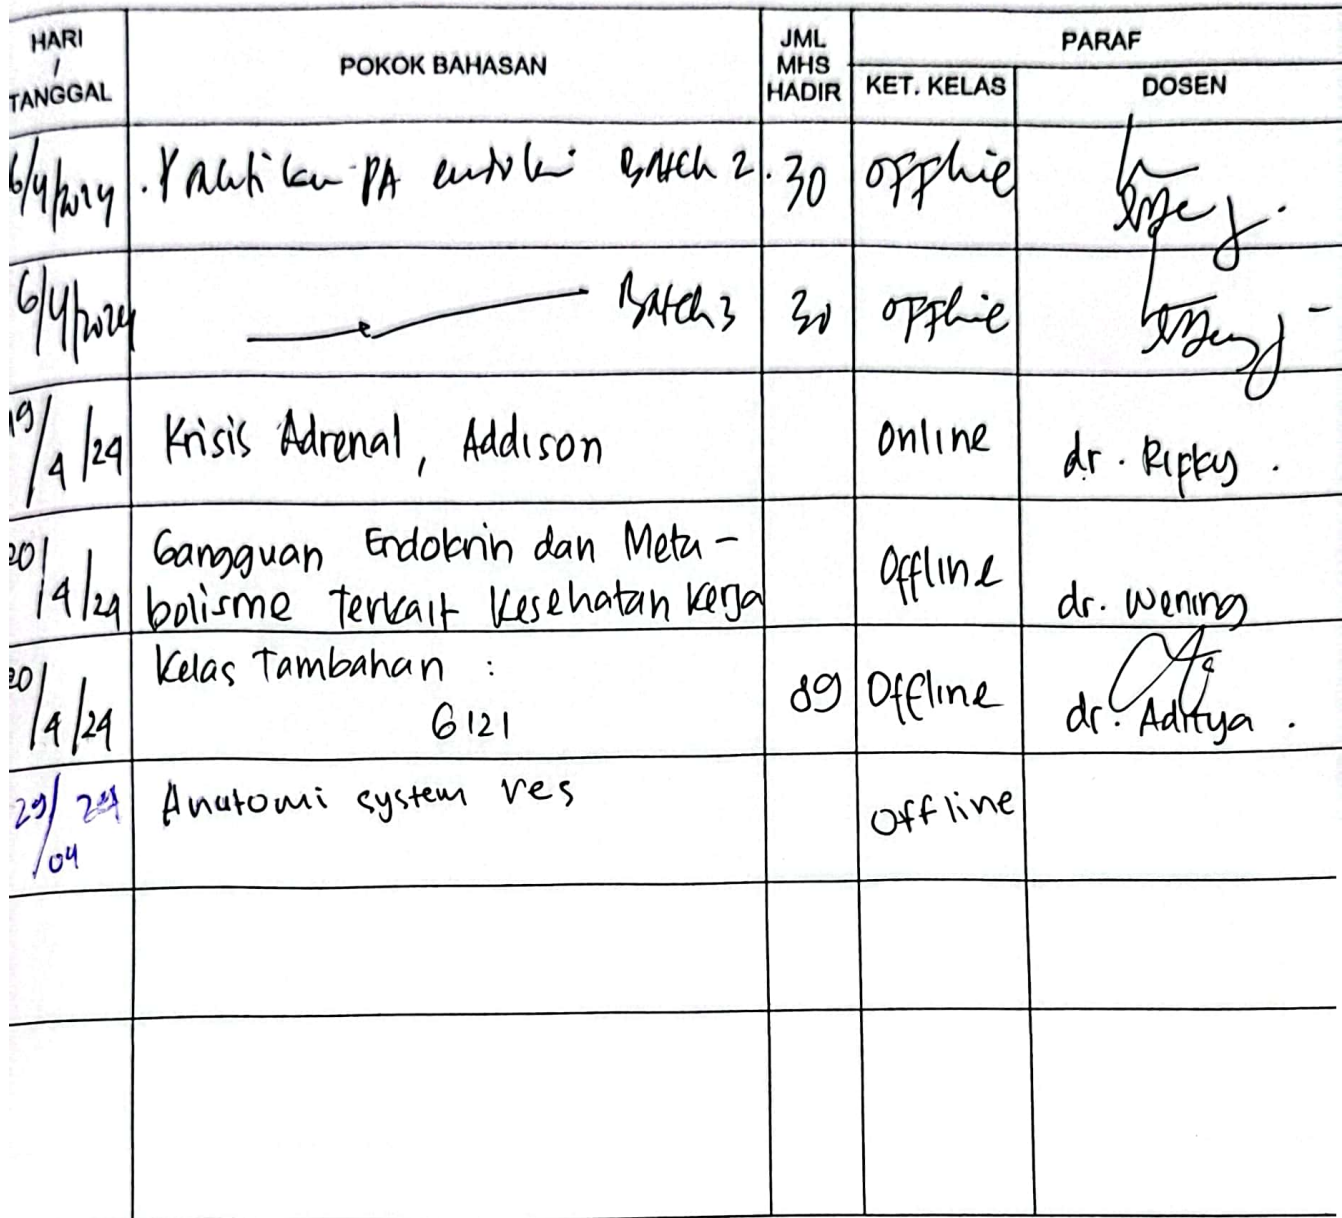 HARI / TANGGAL POKOK BAHASAN JML MHS HADIR PARAF
KET. KELAS DOSEN
6/4/2024 PA Batch 2 30 offline
6/4/2024 Batch 3 30 offline
19/4/24 Krisis Adrenal, Addison Online dr.
20/4/24 Gangguan Endokrin dan Meta-
bolisme Terkait Kesehatan Kerja Offline dr. Wening
20/4/24 Kelas Tambahan :
6121 89 Offline dr. Aditya.
29/04 24 Anatomi system res offline